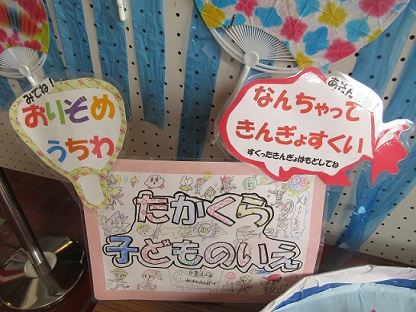 みてね！
おりぞめ
うちわ
なんちゃって
きんぎょすくい
すくったきんぎょはもどしてね
たかくら
子どものいえ